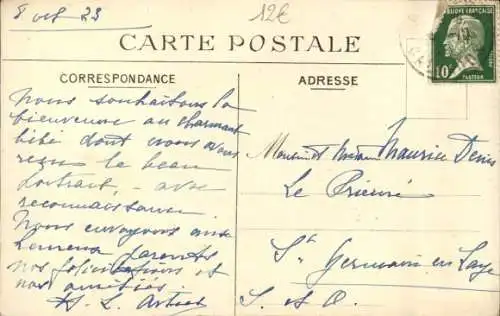 8 oct 23
12€
CARTE POSTALE
CORRESPONDANCE
ADRESSE
RÉPUBLIQUE FRANÇAISE
10c
PASTEUR
Nous souhaitons la
bienvenue au charmant
bébé dont nous avons
reçu le beau
portrait, - avec
reconnaissance.
Nous envoyons aux
heureux parents
nos félicitations et
nos amitiés.
Monsieur et Madame Maurice Denis
Le Prieuré
St Germain en Laye
S. et O.